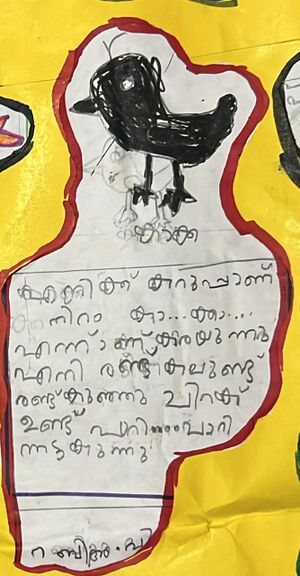 കാക്ക
കാക്കക്ക് കറുപ്പാണ്
നിറം കാ...കാ...
എന്നാണ് കരയുന്നത്
എനി രണ്ട് കാലുണ്ട്
രണ്ട് കുഞ്ഞു ചിറക്
ഉണ്ട് പാറി...പാറി
നടക്കുന്നു